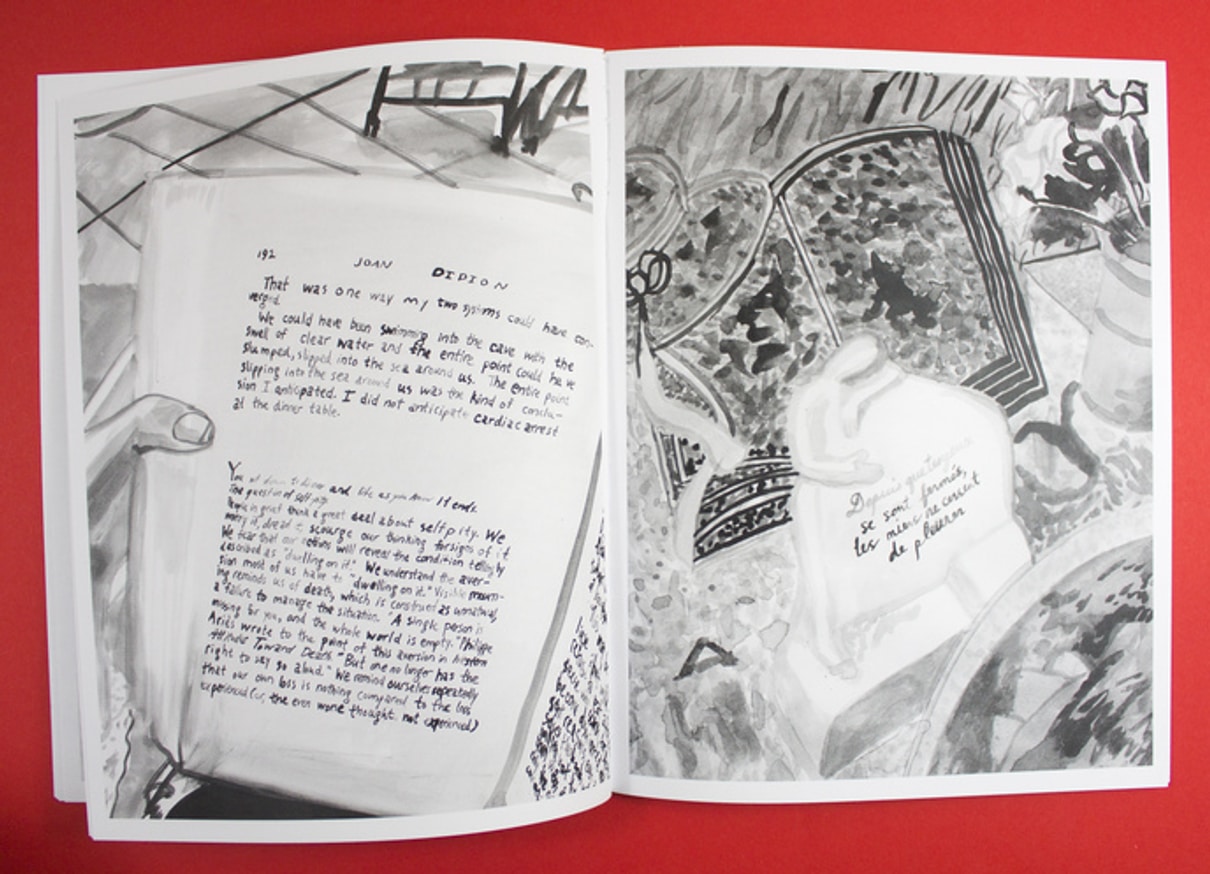 192 JOAN DIDION
That was one way my two systems could have con-
verged.
We could have been swimming into the cave with the
swell of clear water and the entire point could have
slumped, slipped into the sea around us. The entire point
slipping into the sea around us was the kind of conclu-
sion I anticipated. I did not anticipate cardiac arrest
at the dinner table.
You sit down to dinner and life as you know it ends.
The question of self-pity.
People in grief think a great deal about self pity. We
worry it, dread it, scourge our thinking for signs of it
We fear that our actions will reveal the condition tellingly
described as "dwelling on it." We understand the aver-
sion most of us have to "dwelling on it." Visible mourn-
ing reminds us of death, which is construed as unnatural,
a failure to manage the situation. "A single person is
missing for you, and the whole world is empty." Philippe
Ariès wrote to the point of this aversion in Western
Attitudes Toward Death. "But one no longer has the
right to say so aloud." We remind ourselves repeatedly
that our own loss is nothing compared to the loss
experienced (or, the even worse thought, not experienced)
Depuis que tes yeux
se sont fermés,
les miens ne cessent
de pleurer